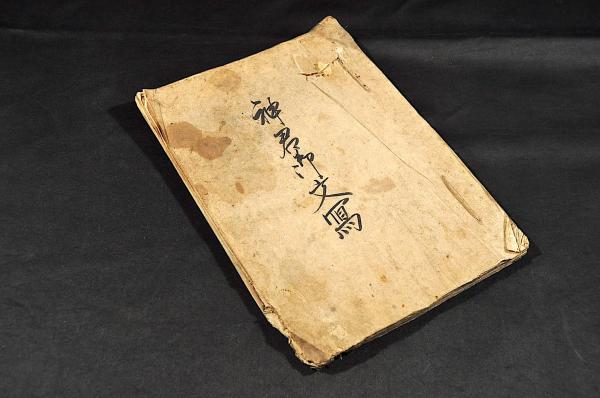 神君御文寫